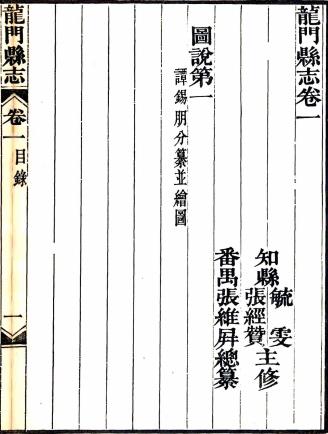 龍門縣志卷一
知縣毓雯
張經贊主修
番禺張維屏總纂
圖說第一
譚錫朋分纂並繪圖
龍門縣志 卷一 目錄 一